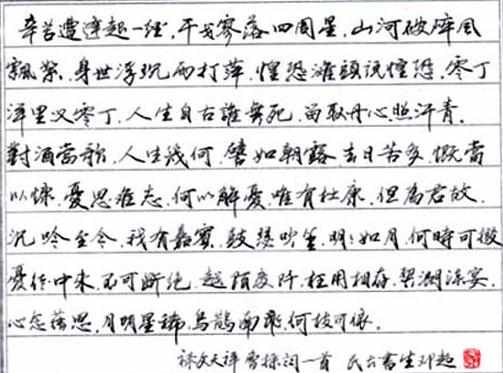 辛苦遭逢起一经.干戈寥落四周星.山河破碎风
飘絮.身世浮沉雨打萍.惶恐滩头说惶恐.零丁
洋里叹零丁.人生自古誰無死.留取丹心照汗青.
對酒當歌.人生幾何.譬如朝露.去日苦多.慨當
以慷.憂思难忘.何以解憂.唯有杜康.但為君故.
沉吟至今.我有嘉賓.鼓瑟吹笙.明明如月.何時可掇
憂從中来.不可断绝.越陌度阡.枉用相存.契阔谈宴.
心念舊恩.月明星稀.烏鵲南飛.何枝可依.
录文天祥 曹操词一首 書生邓超